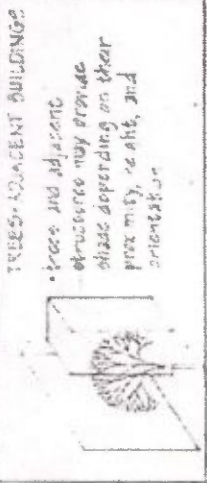 TREES: ADJACENT BUILDINGS
• trees and adjacent
structures may provide
shade depending on their
proximity, height, and
orientation